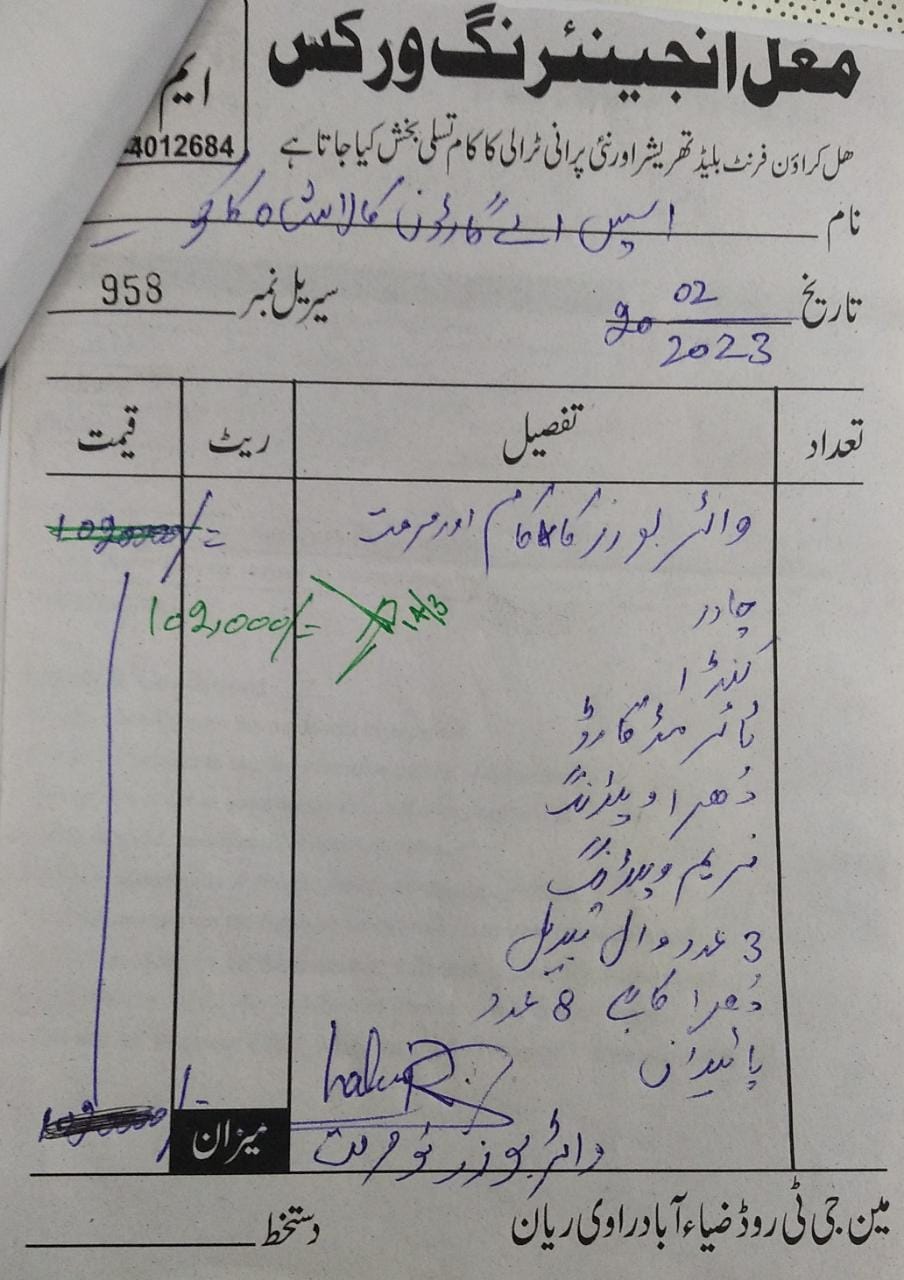 مغل انجینئرنگ ورکس
ایم
4012684
ھل کراؤن فرنٹ بلیڈ تھریشر اور نئی پرانی ٹرالی کا کام تسلی بخش کیا جاتا ہے
نام ایس اے گارڈن کالا شاہ کاکو
تاریخ 20 02 2023
سیریل نمبر 958
تعداد تفصیل ریٹ قیمت
واٹر بوزر کا کام اور مرمت
102,000/=
چادر
کنڈا
ٹائر مڈگارڈ
دُھرا ویلڈنگ
فریم ویلڈنگ
3 عدد وال تبدیل
دُھرا کابلے 8 عدد
پائیدان
میزان
واٹر بوزر نیو مرمت
مین جی ٹی روڈ ضیاء آباد راوی ریان
دستخط